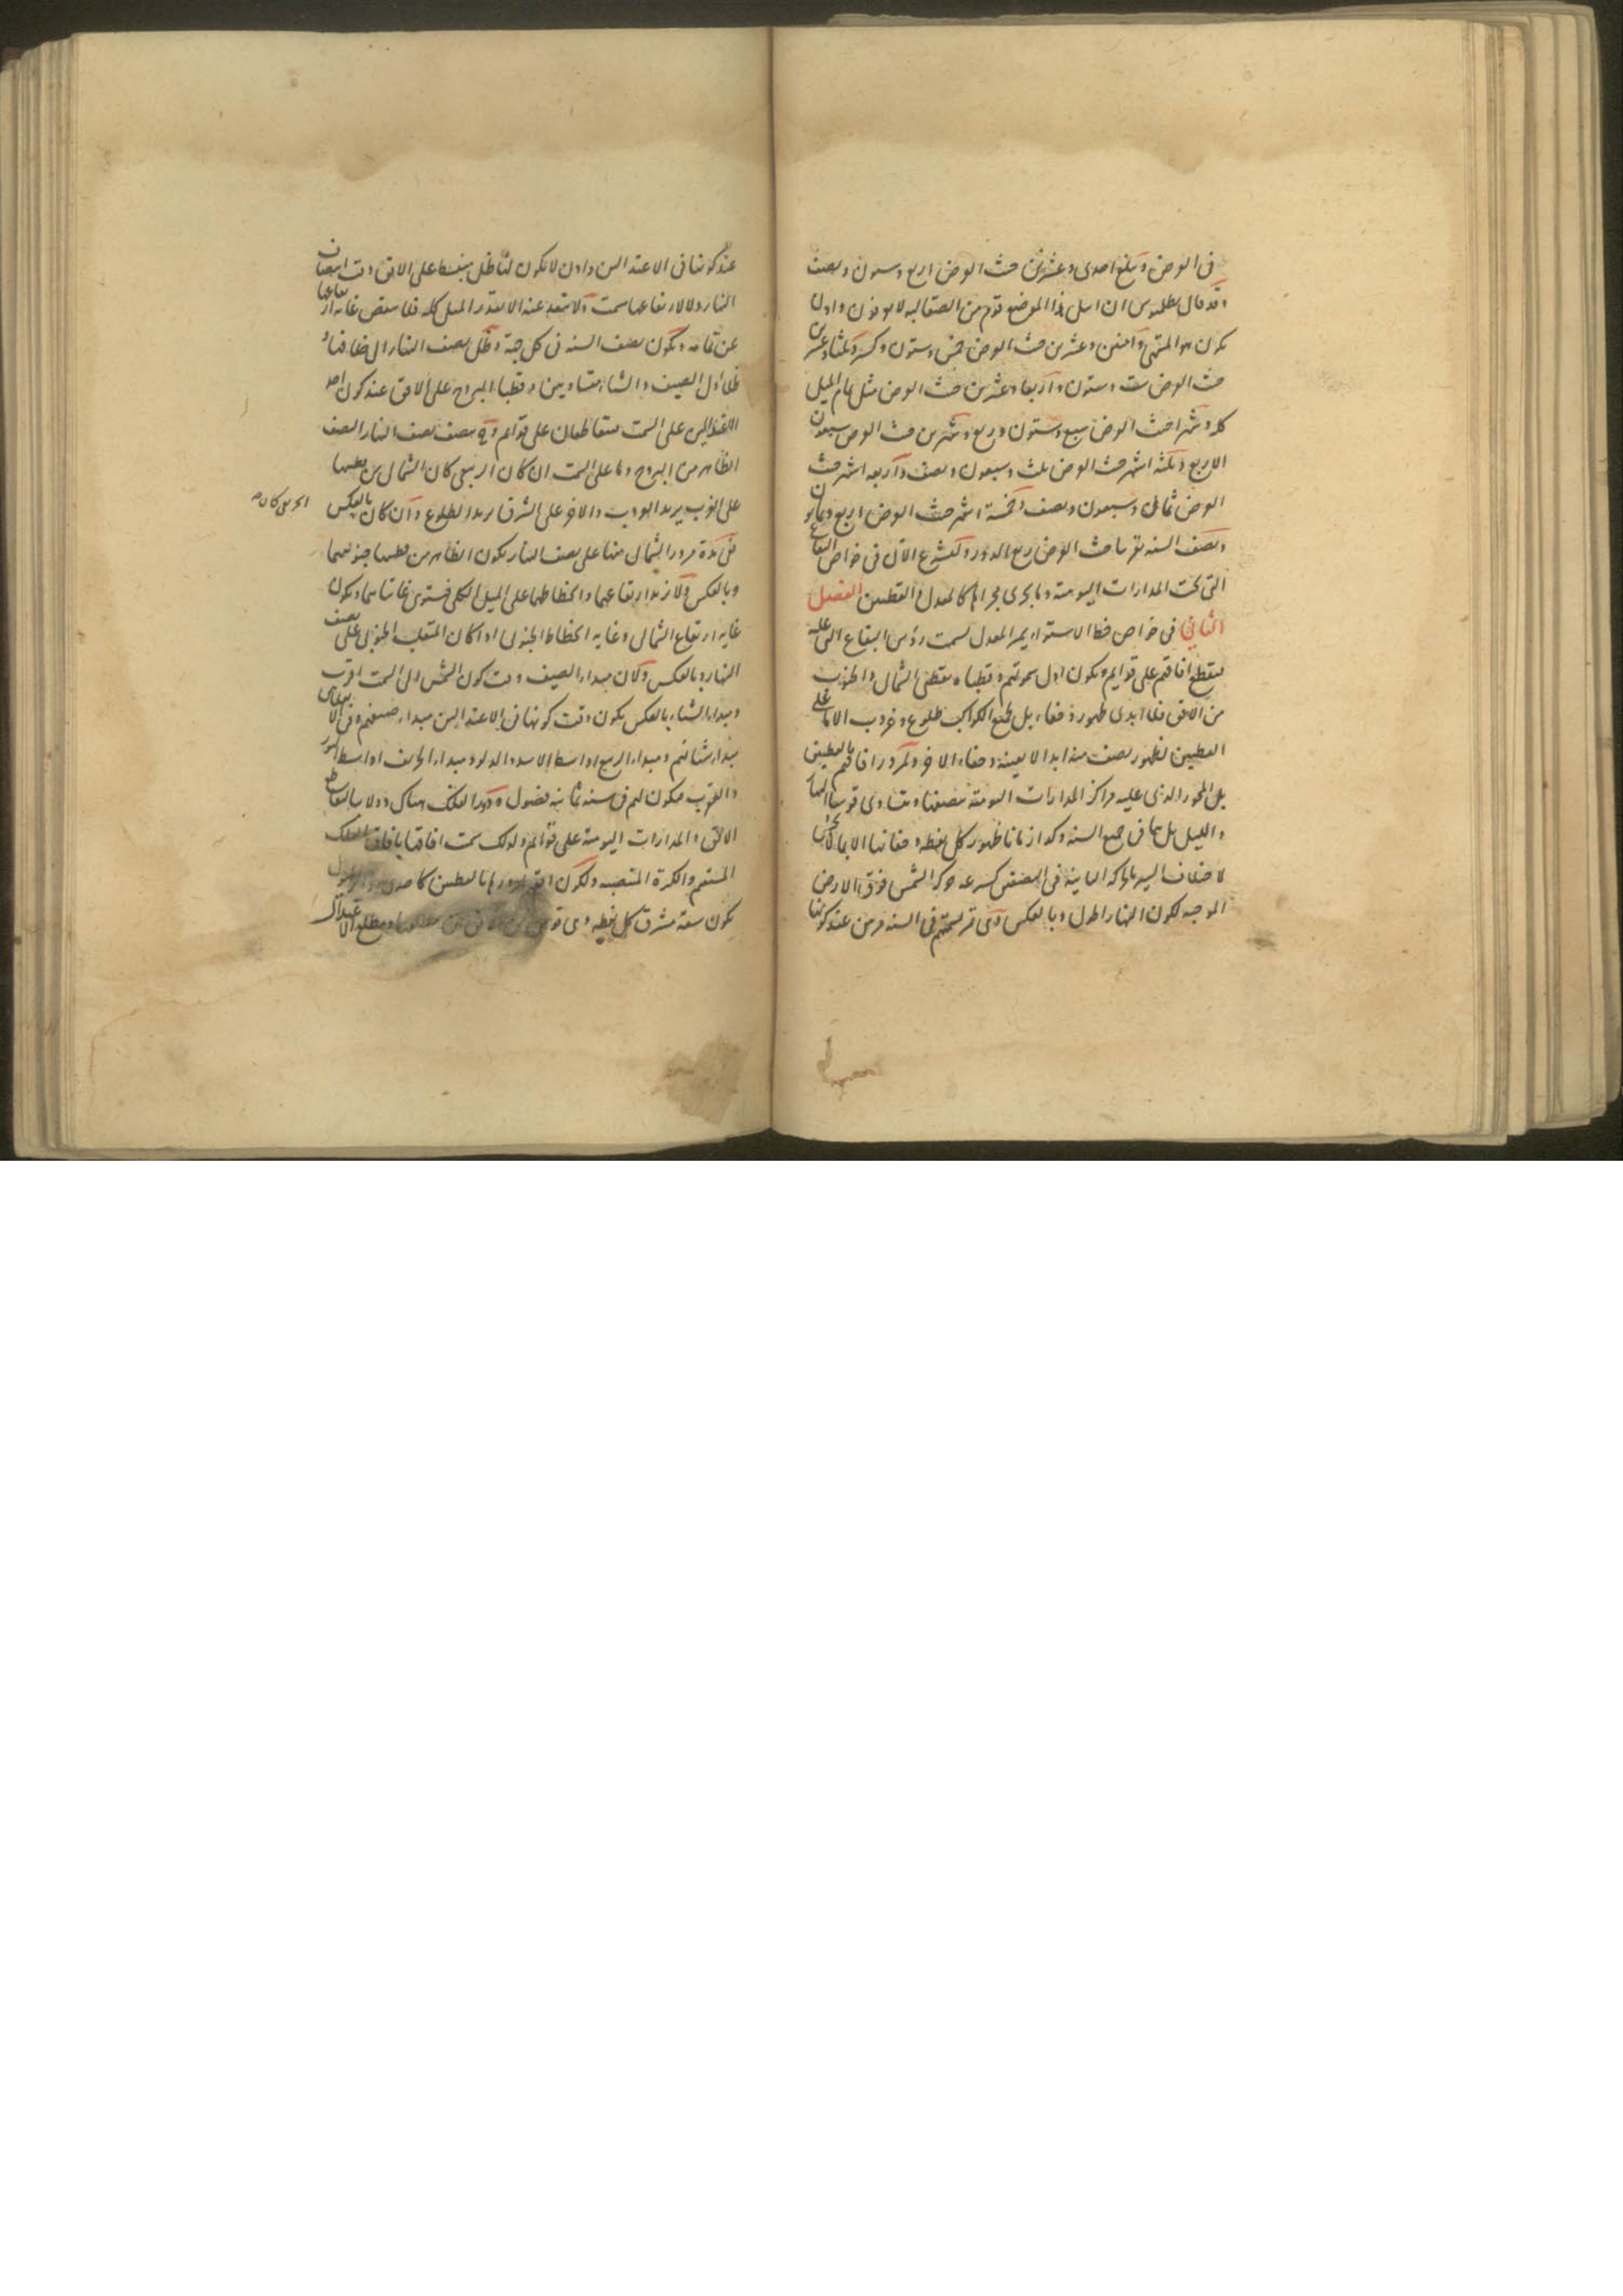 في العرض وتبلغ احدى وعشرين حيث العرض اربع وستون ونصف
وقد قال بطلميوس ان اهل هذا الموضع قوم من الصقالبه لا يعرفون واول
يكون هو المنتهى واثنين وعشرين حيث العرض خمس وستون وكسر وثلثا وعشرين
حيث العرض ست وستون واربعا وعشرين حيث العرض مثل تمام الميل
كله وشهرا حيث العرض سبع وستون وربع وشهرين حيث العرض سبعون
الا ربع وثلثه اشهر حيث العرض ثلث وسبعون ونصف واربعه اشهر حيث
العرض ثمان وسبعون ونصف وخمسة اشهر حيث العرض اربع وثمانون
ونصف السنه تقريبا حيث العرض ربع الدور ولنشرع الآن في خواص البقاع
التي تحت المدارات اليومية وما يجرى مجراها كالمعدل والقطبين الفصل
الثاني في خواص خط الاستواء يمر المعدل بسمت رؤس البقاع التي عليه
فيقطع افاقهم على قوايم ويكون اول سموتهم وقطباه نقطتى الشمال والجنوب
من الافق فلا ابدى ظهور وخفاء بل لجميع الكواكب طلوع وغروب الا ما على
القطبين لظهور نصف منه ابدا لا بعينه وخفاء الاخر ولمرور افاقهم بالقطبين
بل المحور الذى عليه مراكز المدارات اليومية ينصفها ويتساوى قوسا النهار
والليل بل هما في جميع السنه وكذا زمانا ظهور كل نقطه وخفائها الا بما
لاختلاف السير بالحركه الثانية في النصفين كسرعه حركه الشمس فوق الارض
الموجبه لكون النهار اطول وبالعكس وهي تمر بسمتهم في السنه مرتين عند كونها
عند كونها في الاعتدالين واذن لا يكون لها ظل منبسط على الافق وقت انتصاف
النهار ولا لارتفاعها سمت ولا تبعد عنه الا بقدر الميل كله فلا ينقص غايه ارتفاعها
عن تمامه ويكون نصف السنه في كل جهة وظل نصف النهار الى خلافها و
ظلا اول الصيف والشتا متساويين وقطبا البروج على الافق عند كون احد
الاعتدالين على السمت متقاطعان على قوائم وفى نصف النهار النصف
الظاهر من البروج وما على السمت ان كان الربيعى كان الشمالى من قطبيها
على الغرب يريد الغروب والاخر على الشرق يريد الطلوع وان كان بالعكس
الخريفي كان
ففى مدة مرور الشمالى منها على نصف النهار يكون الظاهر من قطبيها جنوبيهما
وبالعكس ولا يزيد ارتفاعهما وانحطاطهما على الميل الكلى فيستوى غايتاهما ويكون
غايه ارتفاع الشمالى وغايه انحطاط الجنوبى اذا كان المنقلب الجنوبى على نصف
النهار وبالعكس ولان مبداء الصيف وقت كون الشمس الى السمت اقرب
ومبداء الشتاء بالعكس يكون وقت كونها في الاعتدالين مبداء صيفهم وفي الانقلابين
مبداء شتائهم ومبداء الربيع اواسط الاسد والدلو ومبداء الخريف اواسط الثور
والعقرب فيكون لهم في سنه ثمانية فصول ودور الفلك هناك دولابيا لتقاطع
الافق والمدارات اليومية على قوائم ولذلك سمت افاقها بافاق الفلك
المستقيم والكرة المنتصبه ولكون الافق
يكون سعة مشرق كل نقطه وهي قوس من الافق بين مطلعها ومطلع الاعتدال